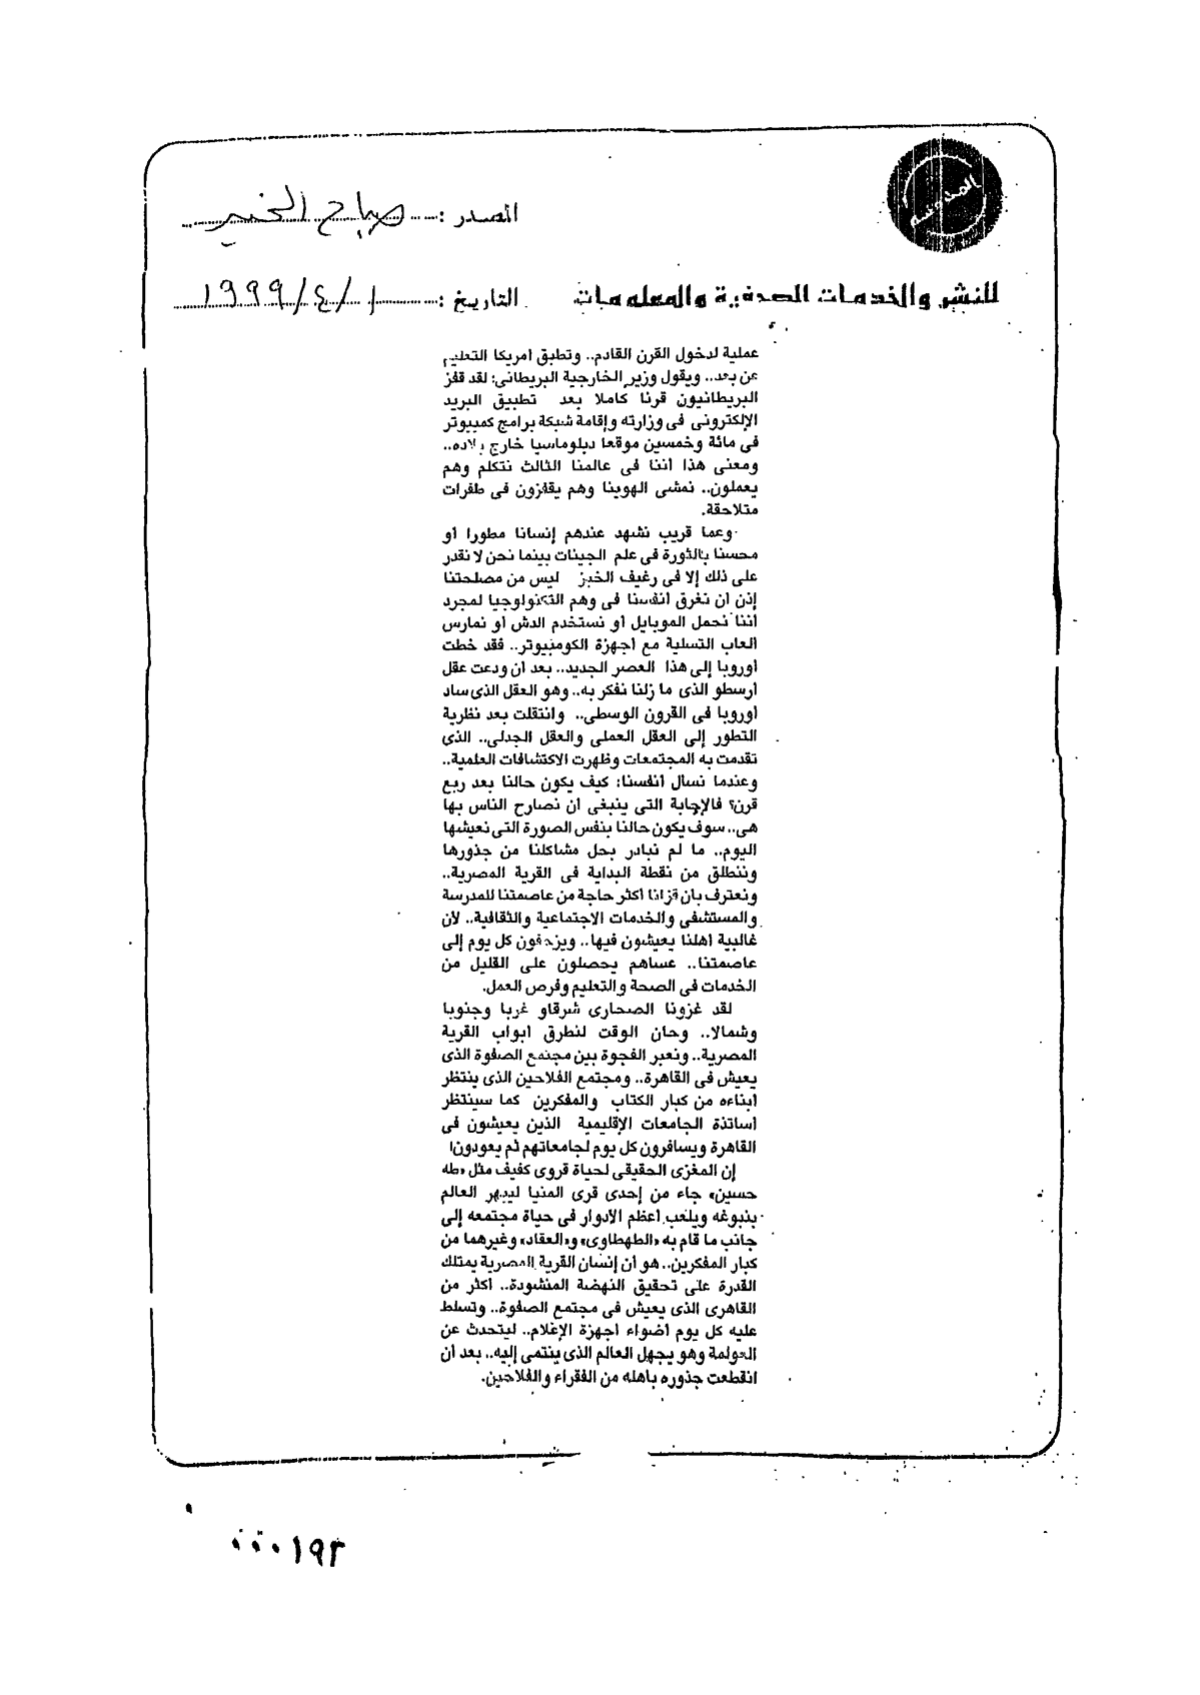 المصدر : صباح الخير
للنشر والخدمات الصحفية والمعلومات
التاريخ : ١/٤/١٩٩٩
عملية لدخول القرن القادم.. وتطبق امريكا التعليم
عن بعد.. ويقول وزير الخارجية البريطانى: لقد قفز
البريطانيون قرنا كاملا بعد تطبيق البريد
الإلكترونى فى وزارته وإقامة شبكة برامج كمبيوتر
فى مائة وخمسين موقعا دبلوماسيا خارج بلاده..
ومعنى هذا أننا فى عالمنا الثالث نتكلم وهم
يعملون.. نمشى الهوينا وهم يقفزون فى طفرات
متلاحقة.
وعما قريب نشهد عندهم إنسانا مطورا أو
محسنا بالثورة فى علم الجينات بينما نحن لا نقدر
على ذلك إلا فى رغيف الخبز ليس من مصلحتنا
إذن ان نغرق انفسنا فى وهم التكنولوجيا لمجرد
أننا نحمل الموبايل أو نستخدم الدش أو نمارس
ألعاب التسلية مع أجهزة الكومبيوتر.. فقد خطت
أوروبا إلى هذا العصر الجديد.. بعد ان ودعت عقل
أرسطو الذى ما زلنا نفكر به.. وهو العقل الذى ساد
أوروبا فى القرون الوسطى.. وانتقلت بعد نظرية
التطور إلى العقل العملى والعقل الجدلى.. الذى
تقدمت به المجتمعات وظهرت الاكتشافات العلمية..
وعندما نسأل أنفسنا: كيف يكون حالنا بعد ربع
قرن؟ فالإجابة التى ينبغى ان نصارح الناس بها
هى.. سوف يكون حالنا بنفس الصورة التى نعيشها
اليوم.. ما لم نبادر بحل مشاكلنا من جذورها
وننطلق من نقطة البداية فى القرية المصرية..
ونعترف بان قرانا أكثر حاجة من عاصمتنا للمدرسة
والمستشفى والخدمات الاجتماعية والثقافية.. لأن
غالبية أهلنا يعيشون فيها.. ويزحفون كل يوم إلى
عاصمتنا.. عساهم يحصلون على القليل من
الخدمات فى الصحة والتعليم وفرص العمل.
لقد غزونا الصحارى شرقاو غربا وجنوبا
وشمالا.. وحان الوقت لنطرق ابواب القرية
المصرية.. ونعبر الفجوة بين مجتمع الصفوة الذى
يعيش فى القاهرة.. ومجتمع الفلاحين الذى ينتظر
أبناءه من كبار الكتاب والمفكرين كما سينتظر
أساتذة الجامعات الإقليمية الذين يعيشون فى
القاهرة ويسافرون كل يوم لجامعاتهم ثم يعودون!
إن المغزى الحقيقى لحياة قروى كفيف مثل «طه
حسين» جاء من إحدى قرى المنيا ليبهر العالم
بنبوغه ويلعب أعظم الأدوار فى حياة مجتمعه إلى
جانب ما قام به «الطهطاوى» و«العقاد» وغيرهما من
كبار المفكرين.. هو أن إنسان القرية المصرية يمتلك
القدرة على تحقيق النهضة المنشودة.. أكثر من
القاهرى الذى يعيش فى مجتمع الصفوة.. وتسلط
عليه كل يوم أضواء أجهزة الإعلام.. ليتحدث عن
العولمة وهو يجهل العالم الذى ينتمى إليه.. بعد ان
انقطعت جذوره بأهله من الفقراء والفلاحين.
٠٠٠١٩٣